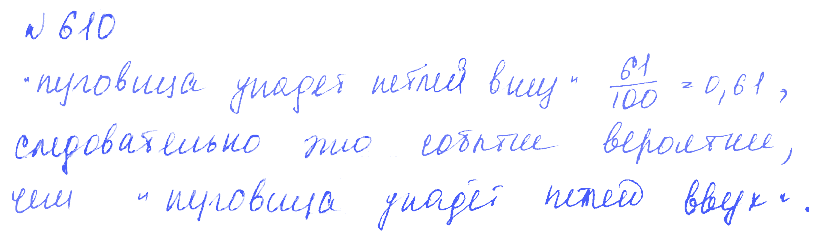 № 610
"пуговица упадет петлей вниз" 61/100 = 0,61,
следовательно это событие вероятнее,
чем "пуговица упадёт петлей вверх".